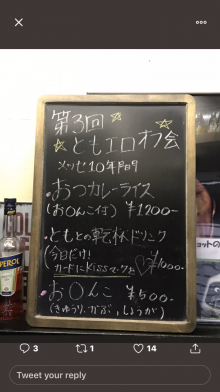 第3回
ともエロオフ会
メッセ10年目9
・おつカレーライス
(お〇んこ付) ¥1200-
・ともとの乾杯ドリンク
(今日だけ!
カードにKissマークを♡ ¥1000-
・お〇んこ ¥500-
(きゅうり、かぶ、しょうが)
APEROL
3
1
14
Tweet your reply